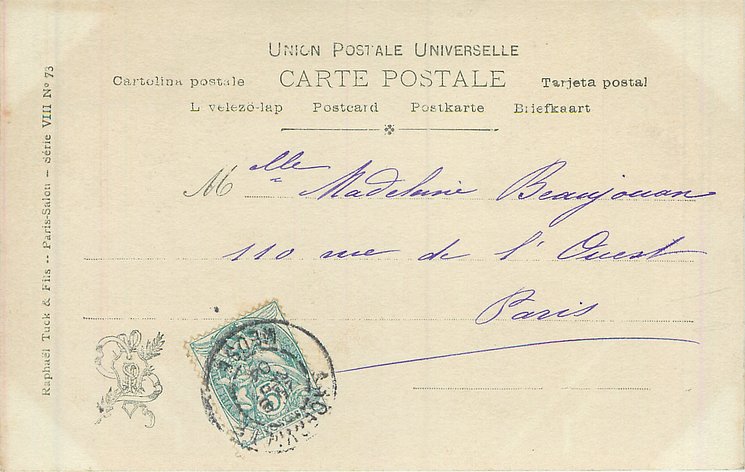 UNION POSTALE UNIVERSELLE
Cartolina postale CARTE POSTALE Tarjeta postal
Levelezö-lap Postcard Postkarte Briefkaart
Mlle Madeleine Beaujouan
110 rue de l'Ouest
Paris
Raphaël Tuck & Fils -- Paris-Salon — Série VIII Nº 73